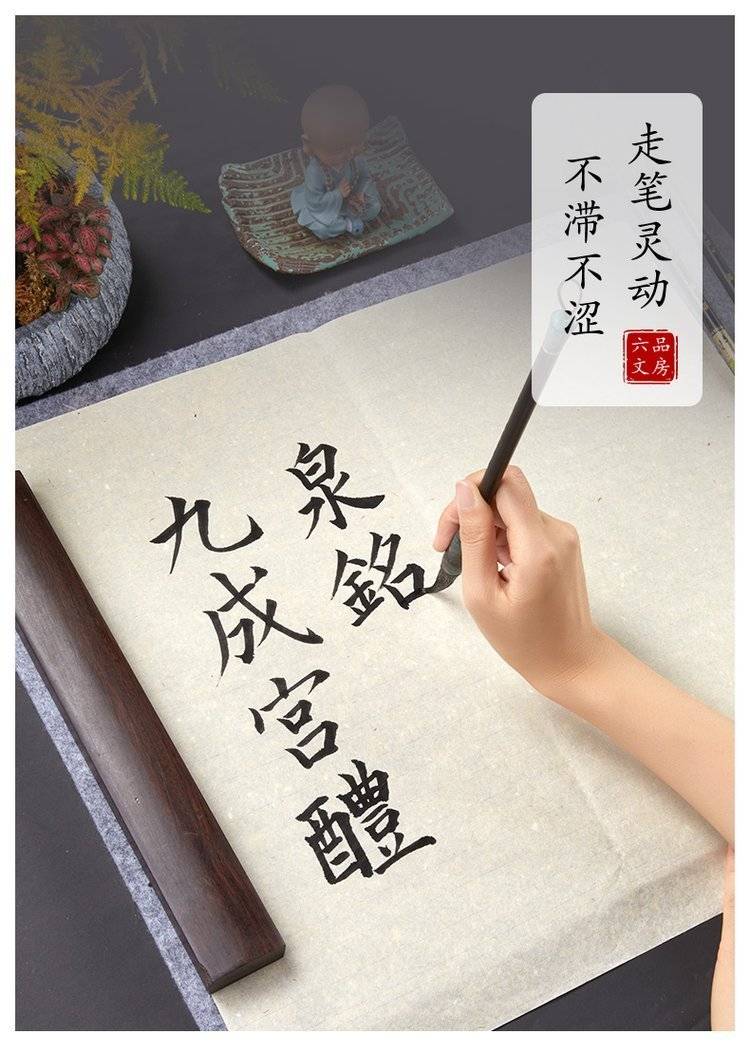 走笔灵动
不滞不涩
六品
文房
九成宫醴
泉銘